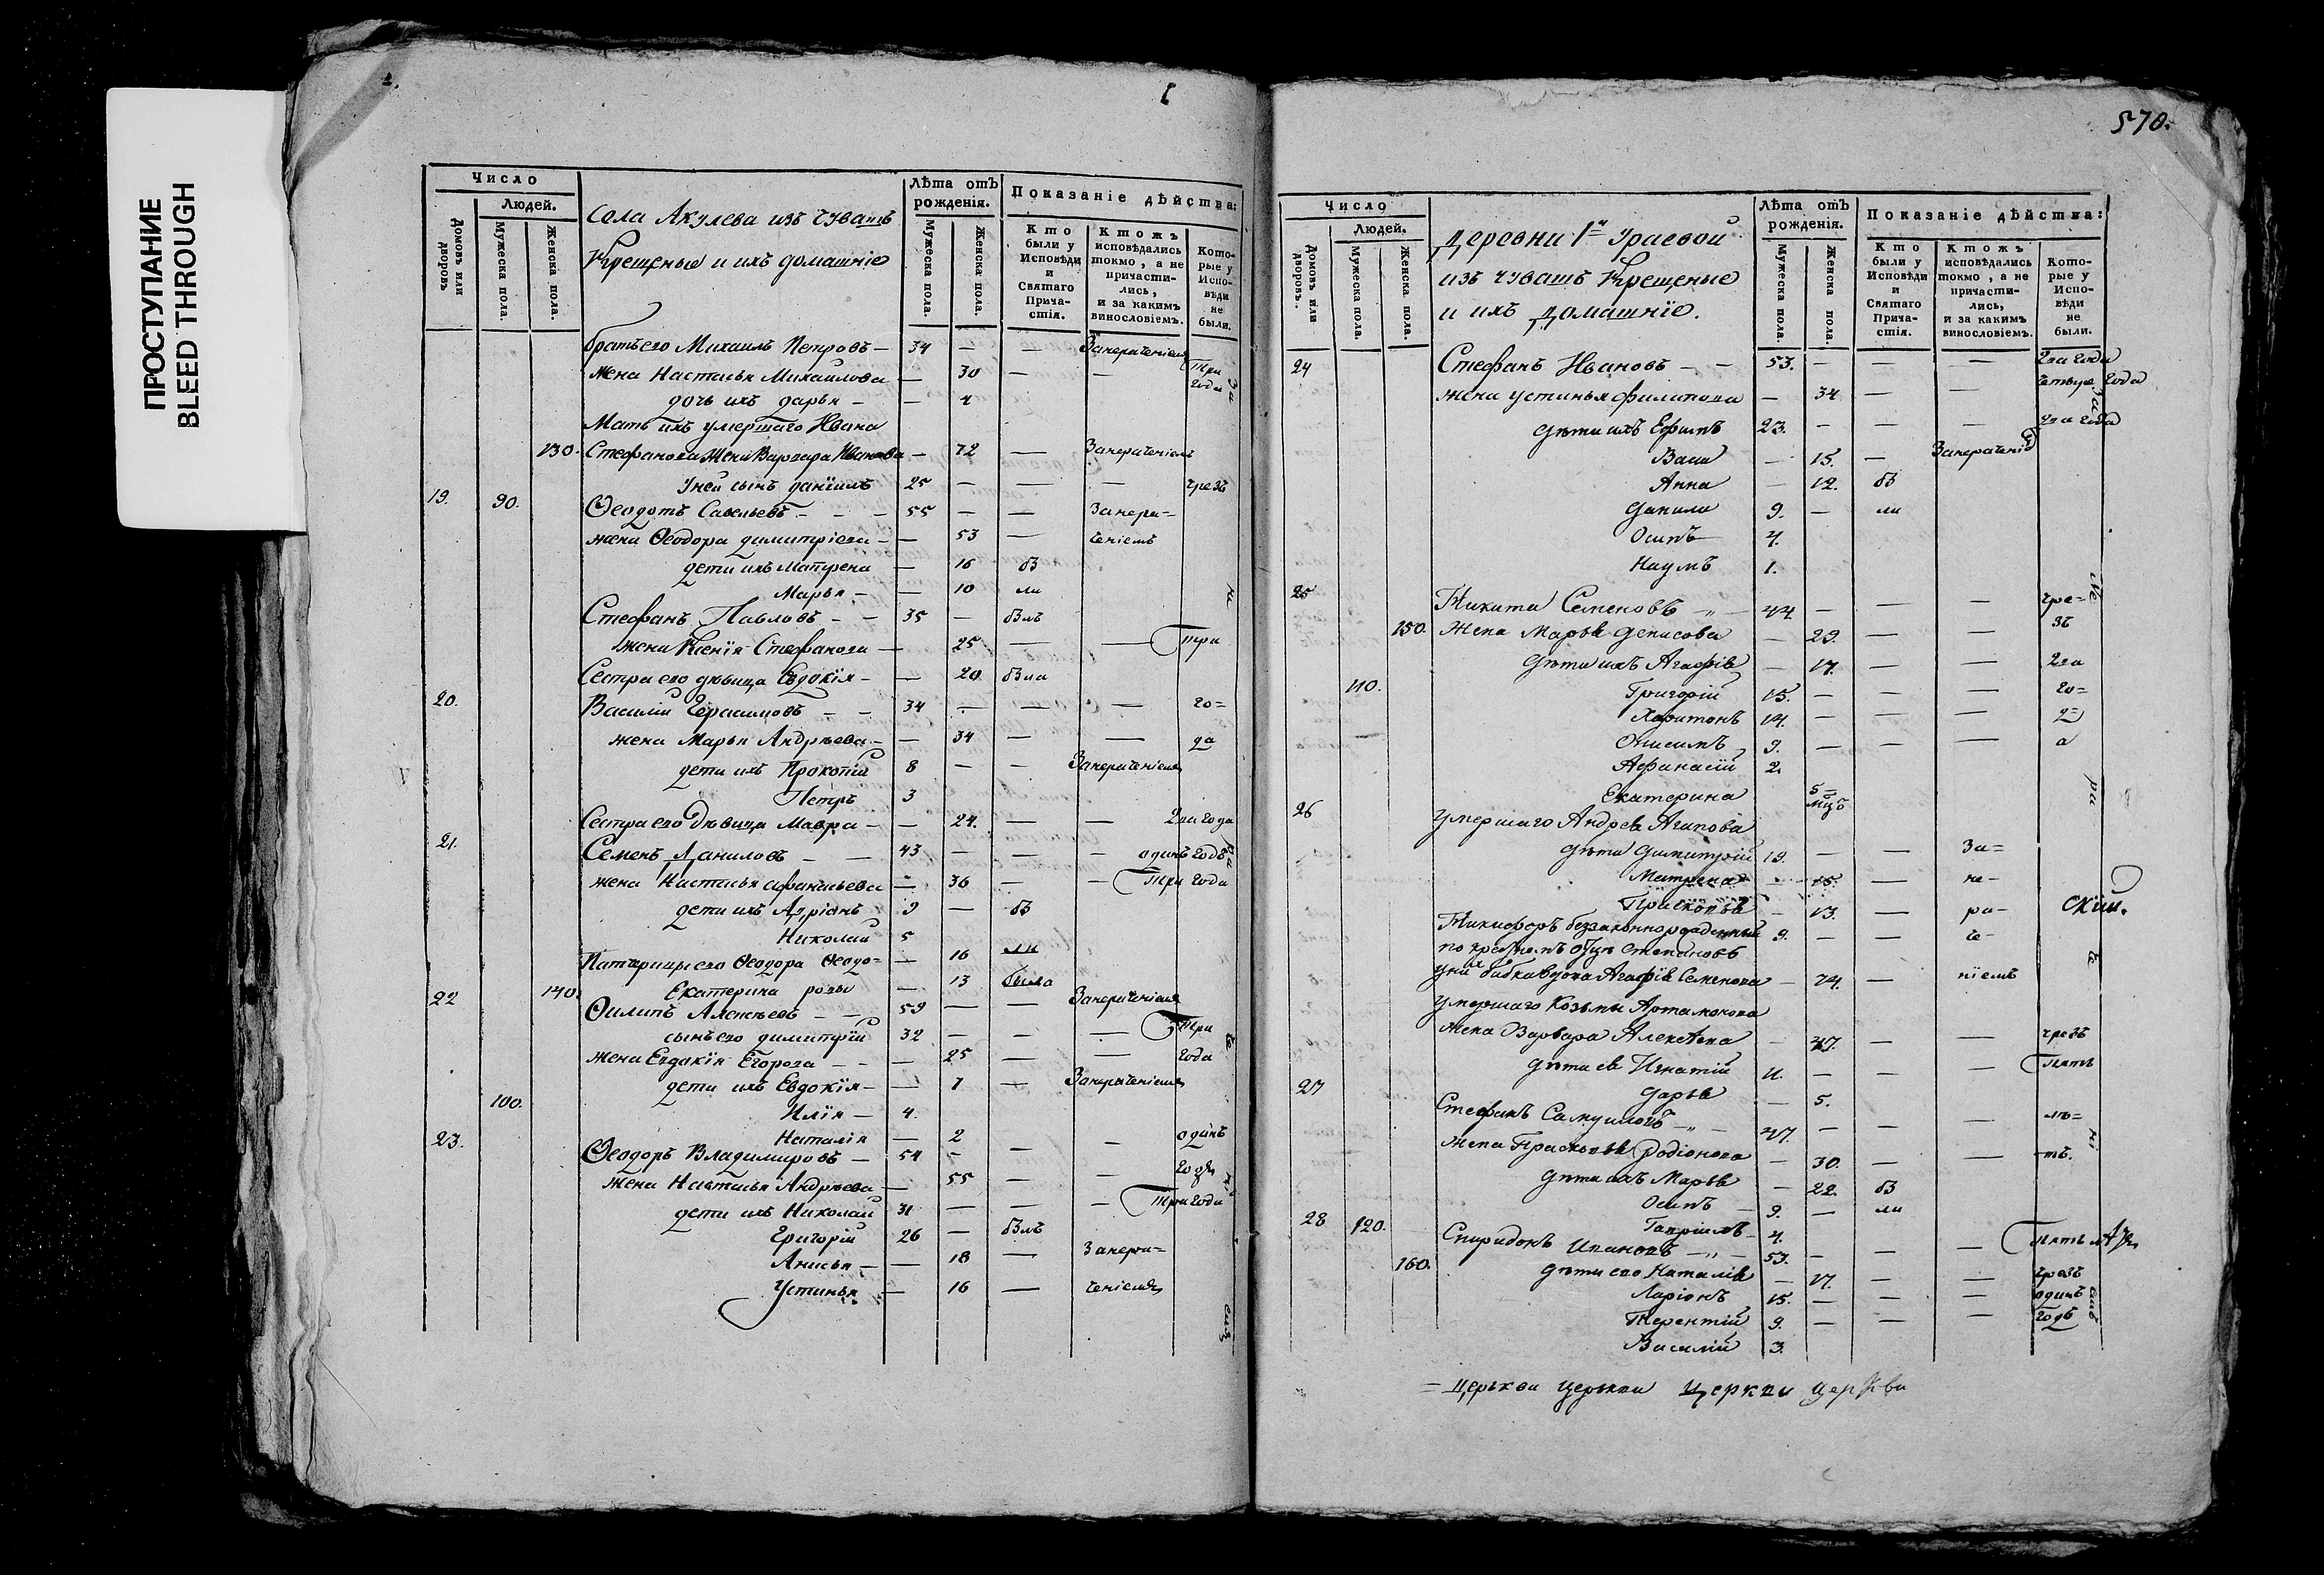 ПРОСТУПАНИЕ
BLEED THROUGH
Число
Людей.
Домовъ или дворовъ
Мужеска пола.
Женска пола.
Села Акулева изъ чувашъ
Крещеные и ихъ домашніе
Лѣта отъ рожденія.
Мужеска пола.
Женска пола.
Показаніе дѣйства:
Кто были у Исповѣди и Святаго Прича-стія.
Ктожъ исповѣдались токмо, а не причасти-лись, и за какимъ винословіемъ.
Кото-рые у Испо-вѣди не были.
братъ его Михаилъ Петровъ — 34 — — Занерачениемъ
жена Настасья Михайлова — 30 — — три года
дочь ихъ Дарья — — 4
Мать ихъ умершаго Ивана
130. Стефанова жена Варвара Иванова — 72 — Занераченіемъ
у ней сынъ Даніилъ 25 — — — чрезъ
19. 90. Ѳеодотъ Савельевъ — — — 55 — — Занера=
жена Ѳеодора Димитріева — — 53 — ченіемъ
дети ихъ Матрена — 16 бы
Марья — — 10 ли
Стефанъ Павловъ — — 35 — былъ
жена Ксенія Стефанова — 25 — — три
Сестра его девица Евдокія — — 20 была
20. Василій Герасимовъ — — 34 — — — го=
жена Марья Андреева — — 34 — — да
дети ихъ Прокопій 8 — — Занераченіемъ
Петръ 3
Сестра его Девица Мавра — — 24. — — два года
21. Семенъ Даниловъ — — 43 — — — одинъ годъ
жена Настасья Афанасьева — 36 — — три года
дети ихъ Адріанъ 9 — бы
Николай 5 ли
Падчерицы его Ѳеодора Ѳеодо= — 16
140. Екатерина ровы — 13 была
22 Филипъ Алексеевъ — — 59 — — Занераченіемъ
сынъ его Димитрій 32 — — — три
жена Евдокія Егорова — — — 25 — — года
дети ихъ Евдокія — — 7 — Занераченіемъ
100. Илія — 4.
Наталія — 2
23. Ѳеодоръ Владимировъ — 54 — — — одинъ
жена Настасья Андреева — 55 — — годъ
дети ихъ Николай 31 — — — три года
Григорій 26 — былъ
Анисья — — 18 — Занера=
Устинья — 16 — ченіемъ
570.
Число
Людей.
Домовъ или дворовъ.
Мужеска пола.
Женска пола.
Деревни 1й Ураевой
изъ чувашъ Крещеные
и ихъ домашніе.
Лѣта отъ рожденія.
Мужеска пола.
Женска пола.
Показаніе дѣйства:
Кто были у Исповѣди и Святаго Прича-стія.
Ктожъ исповѣдались токмо, а не причасти-лись, и за какимъ винословіемъ.
Кото-рые у Испо-вѣди не были.
24 Стефанъ Ивановъ — — 53. — — два года
жена Устинья Филипова — 34 — — четыре года
дѣти ихъ Ефимъ 23. — — — два года
Васа — 15. — Занераченіе
Анна — 12. бы
Данила 9. — ли
Осипъ 4.
Наумъ 1.
25 Никита Семеновъ — 44 — — — чре=
150. Жена Марья Денисова — 29. — — зъ
дѣти ихъ Агафія — 17. — — два
110. Григорій 15. — — — го=
Харитонъ 14. — — — д=
Онисимъ 9. — — — а
Афанасій 2.
Екатерина 5= мцъ
26 Умершаго Андрея Агапова
дѣти Димитрій 19. — — За=
Матрена — 15. — не-
Прасковья — 13. — ра- скій.
Никифоръ беззаконнорожденный 9. — — че-
по крестномъ отцѣ Степановъ
у нихъ бабка вдова Агафія Семенова — 74. — ніемъ
Умершаго Козьмы Артамонова
жена Варвара Алексѣева — 47. — — чрезъ
дѣти ея Игнатій 11. — — — пять
Дарья — 5.
27 Стефанъ Самуиловъ — 47. — — — лѣ=
жена Прасковья Родіонова — 30. — — тъ.
дѣти ихъ Марья — 22. бы
Осипъ — 9. — ли
Гавріилъ — 4.
28 120. Спиридонъ Ивановъ — 53. — — — пять лѣтъ
160. дѣти его Наталія — 17. — — чрезъ
Ларіонъ 15. — — — одинъ
Терентій 9. — — — годъ
Василій 3.
= церкви церкви церкви церкви